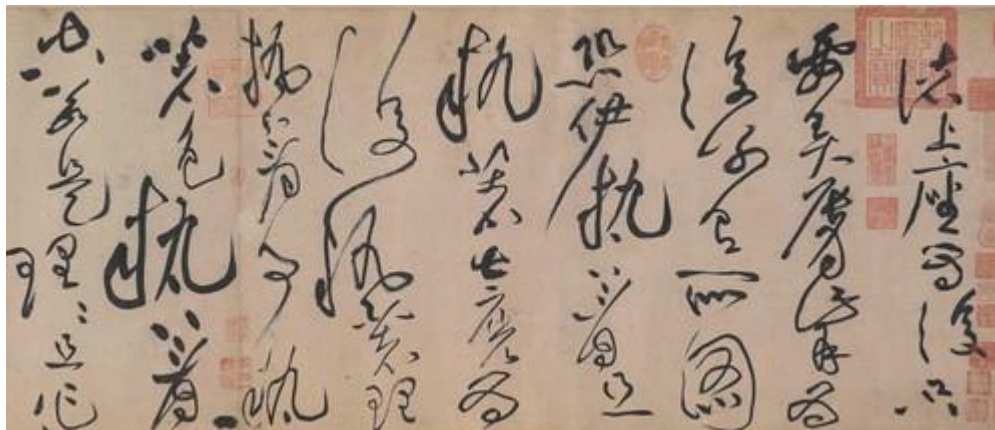 諸上座為復只
要弄唇觜為
復別有所圖
恐伊執著且
執著甚麼為
復執著理
執著事執
著色執著
空若是理〻且作